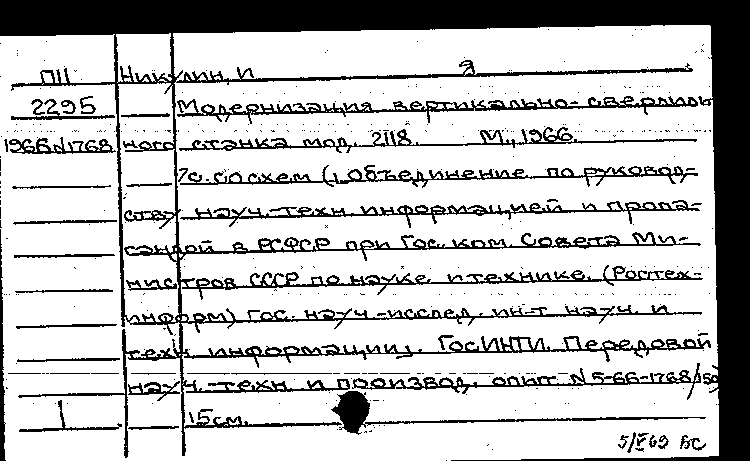 П11 Никулин, И Я
2295 Модернизация вертикально-сверлиль
1966N1768 ного станка мод. 2118. М., 1966.
7с. со схем (, Объединение по руковод-
ству науч.-техн. информацией и пропа-
гандой в РСФСР при Гос. ком. Совета Ми-
нистров СССР по науке и технике. (Ростех-
информ) Гос. науч-исслед. ин-т науч. и
техн информации). ГосИНТИ. Передовой
науч.-техн. и производ. опыт N5-66-1768/150
1 15см.
5/V 69 ВС